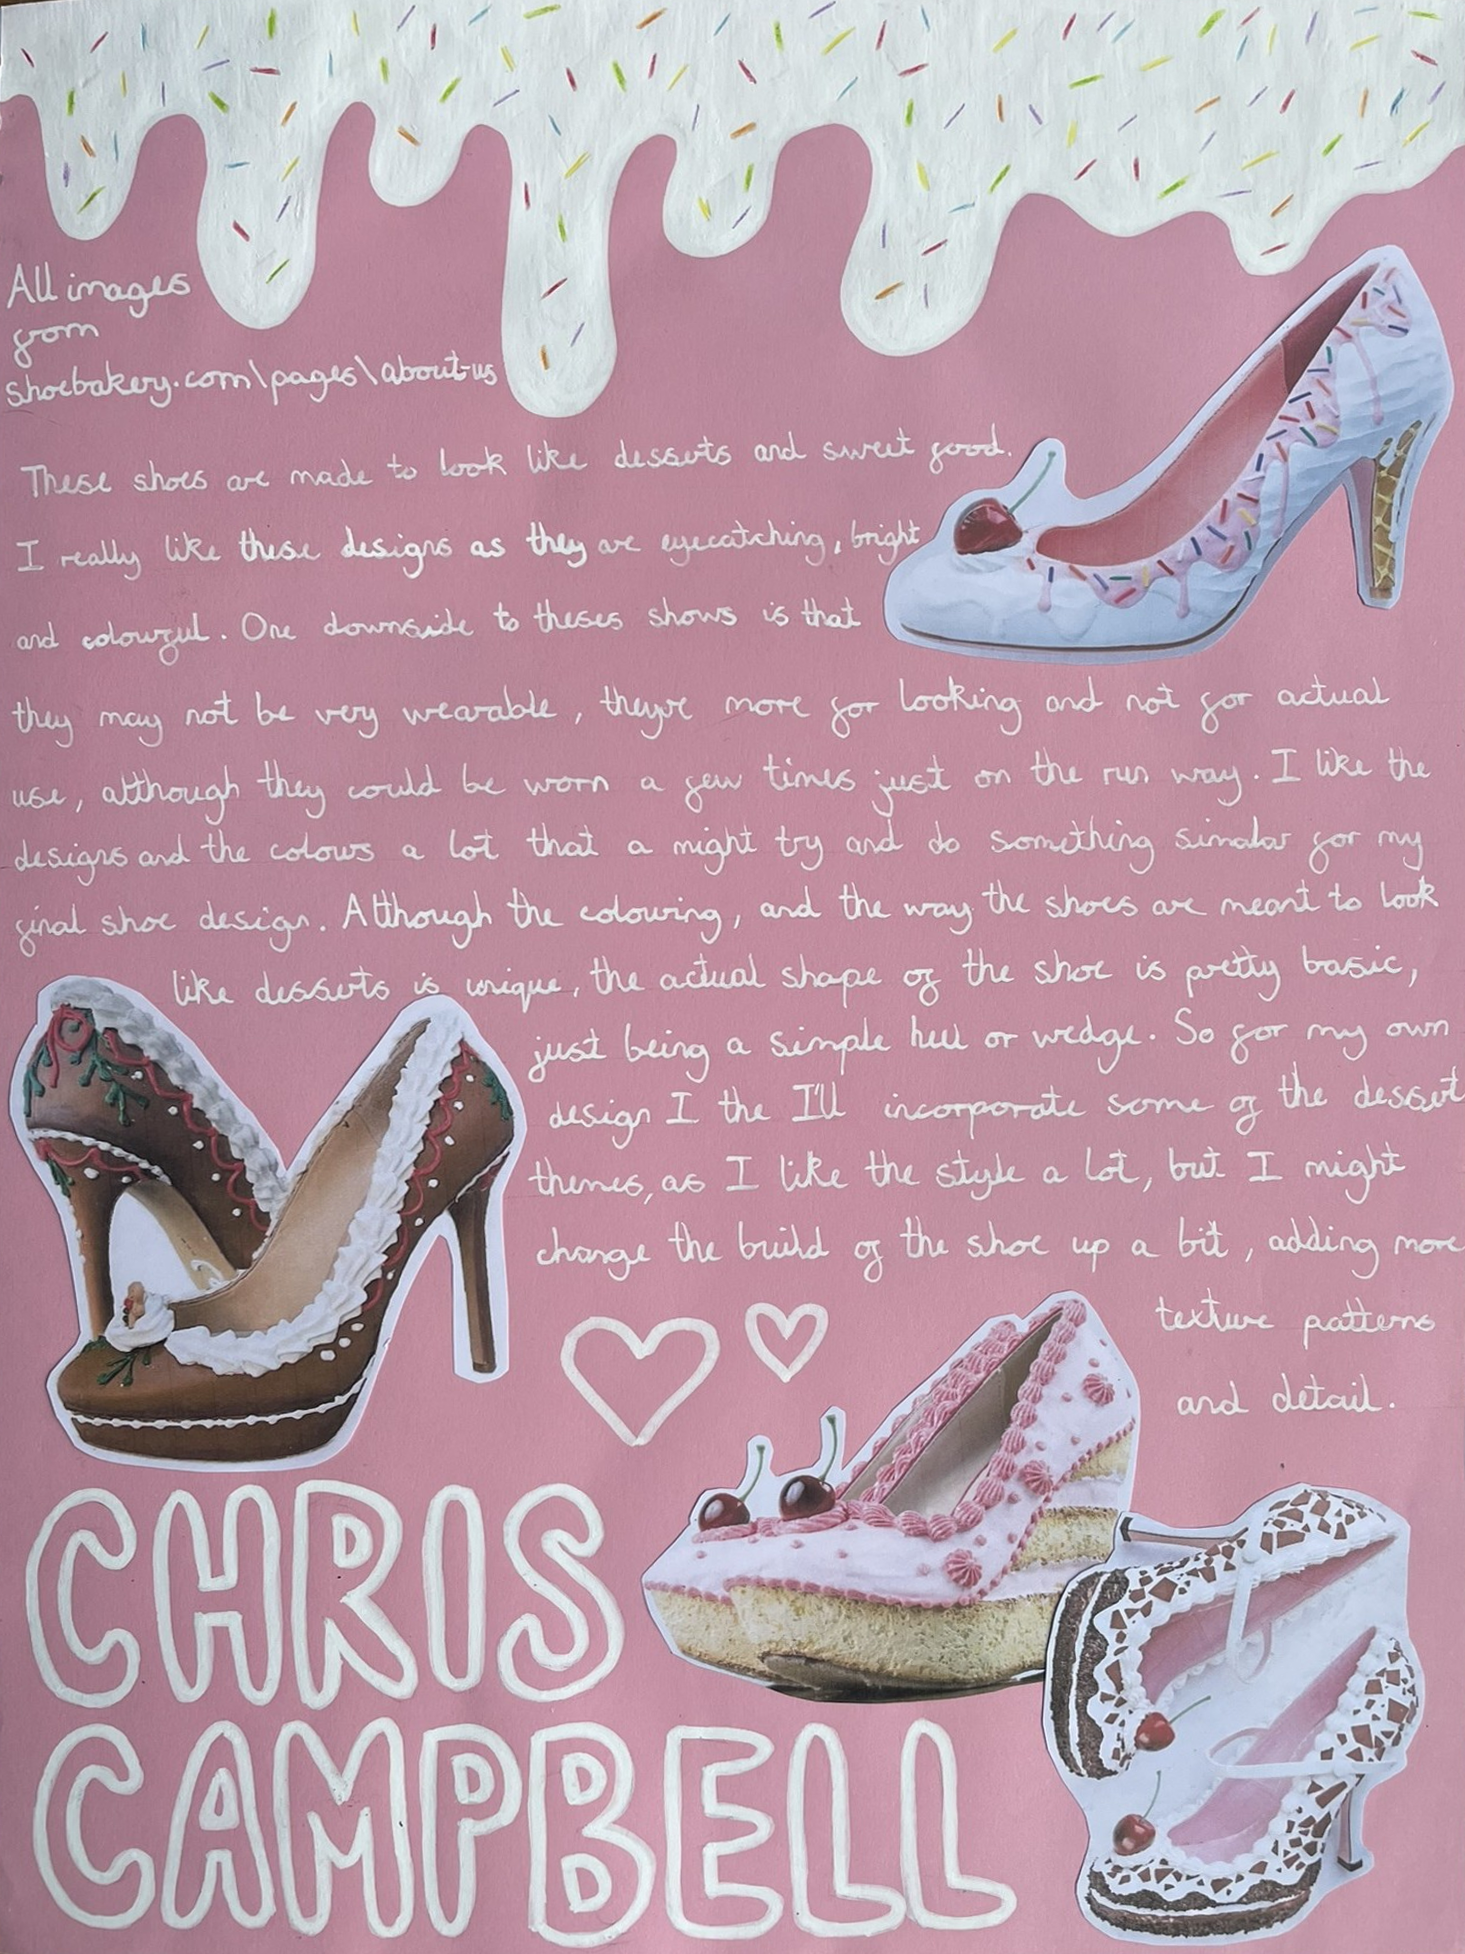 All images
from
shoebakery.com\pages\about-us
These shoes are made to look like desserts and sweet good.
I really like these designs as they are eyecatching, bright
and colourful. One downside to theses shows is that
they may not be very wearable, theyre more for looking and not for actual
use, although they could be worn a few times just on the run way. I like the
designs and the colours a lot that a might try and do something similar for my
final shoe design. Although the colouring, and the way the shoes are meant to look
like desserts is unique, the actual shape of the shoe is pretty basic,
just being a simple heel or wedge. So for my own
design I the I'll incorporate some of the dessert
themes, as I like the style a lot, but I might
change the build of the shoe up a bit, adding more
texture patterns
and detail.
CHRIS
CAMPBELL